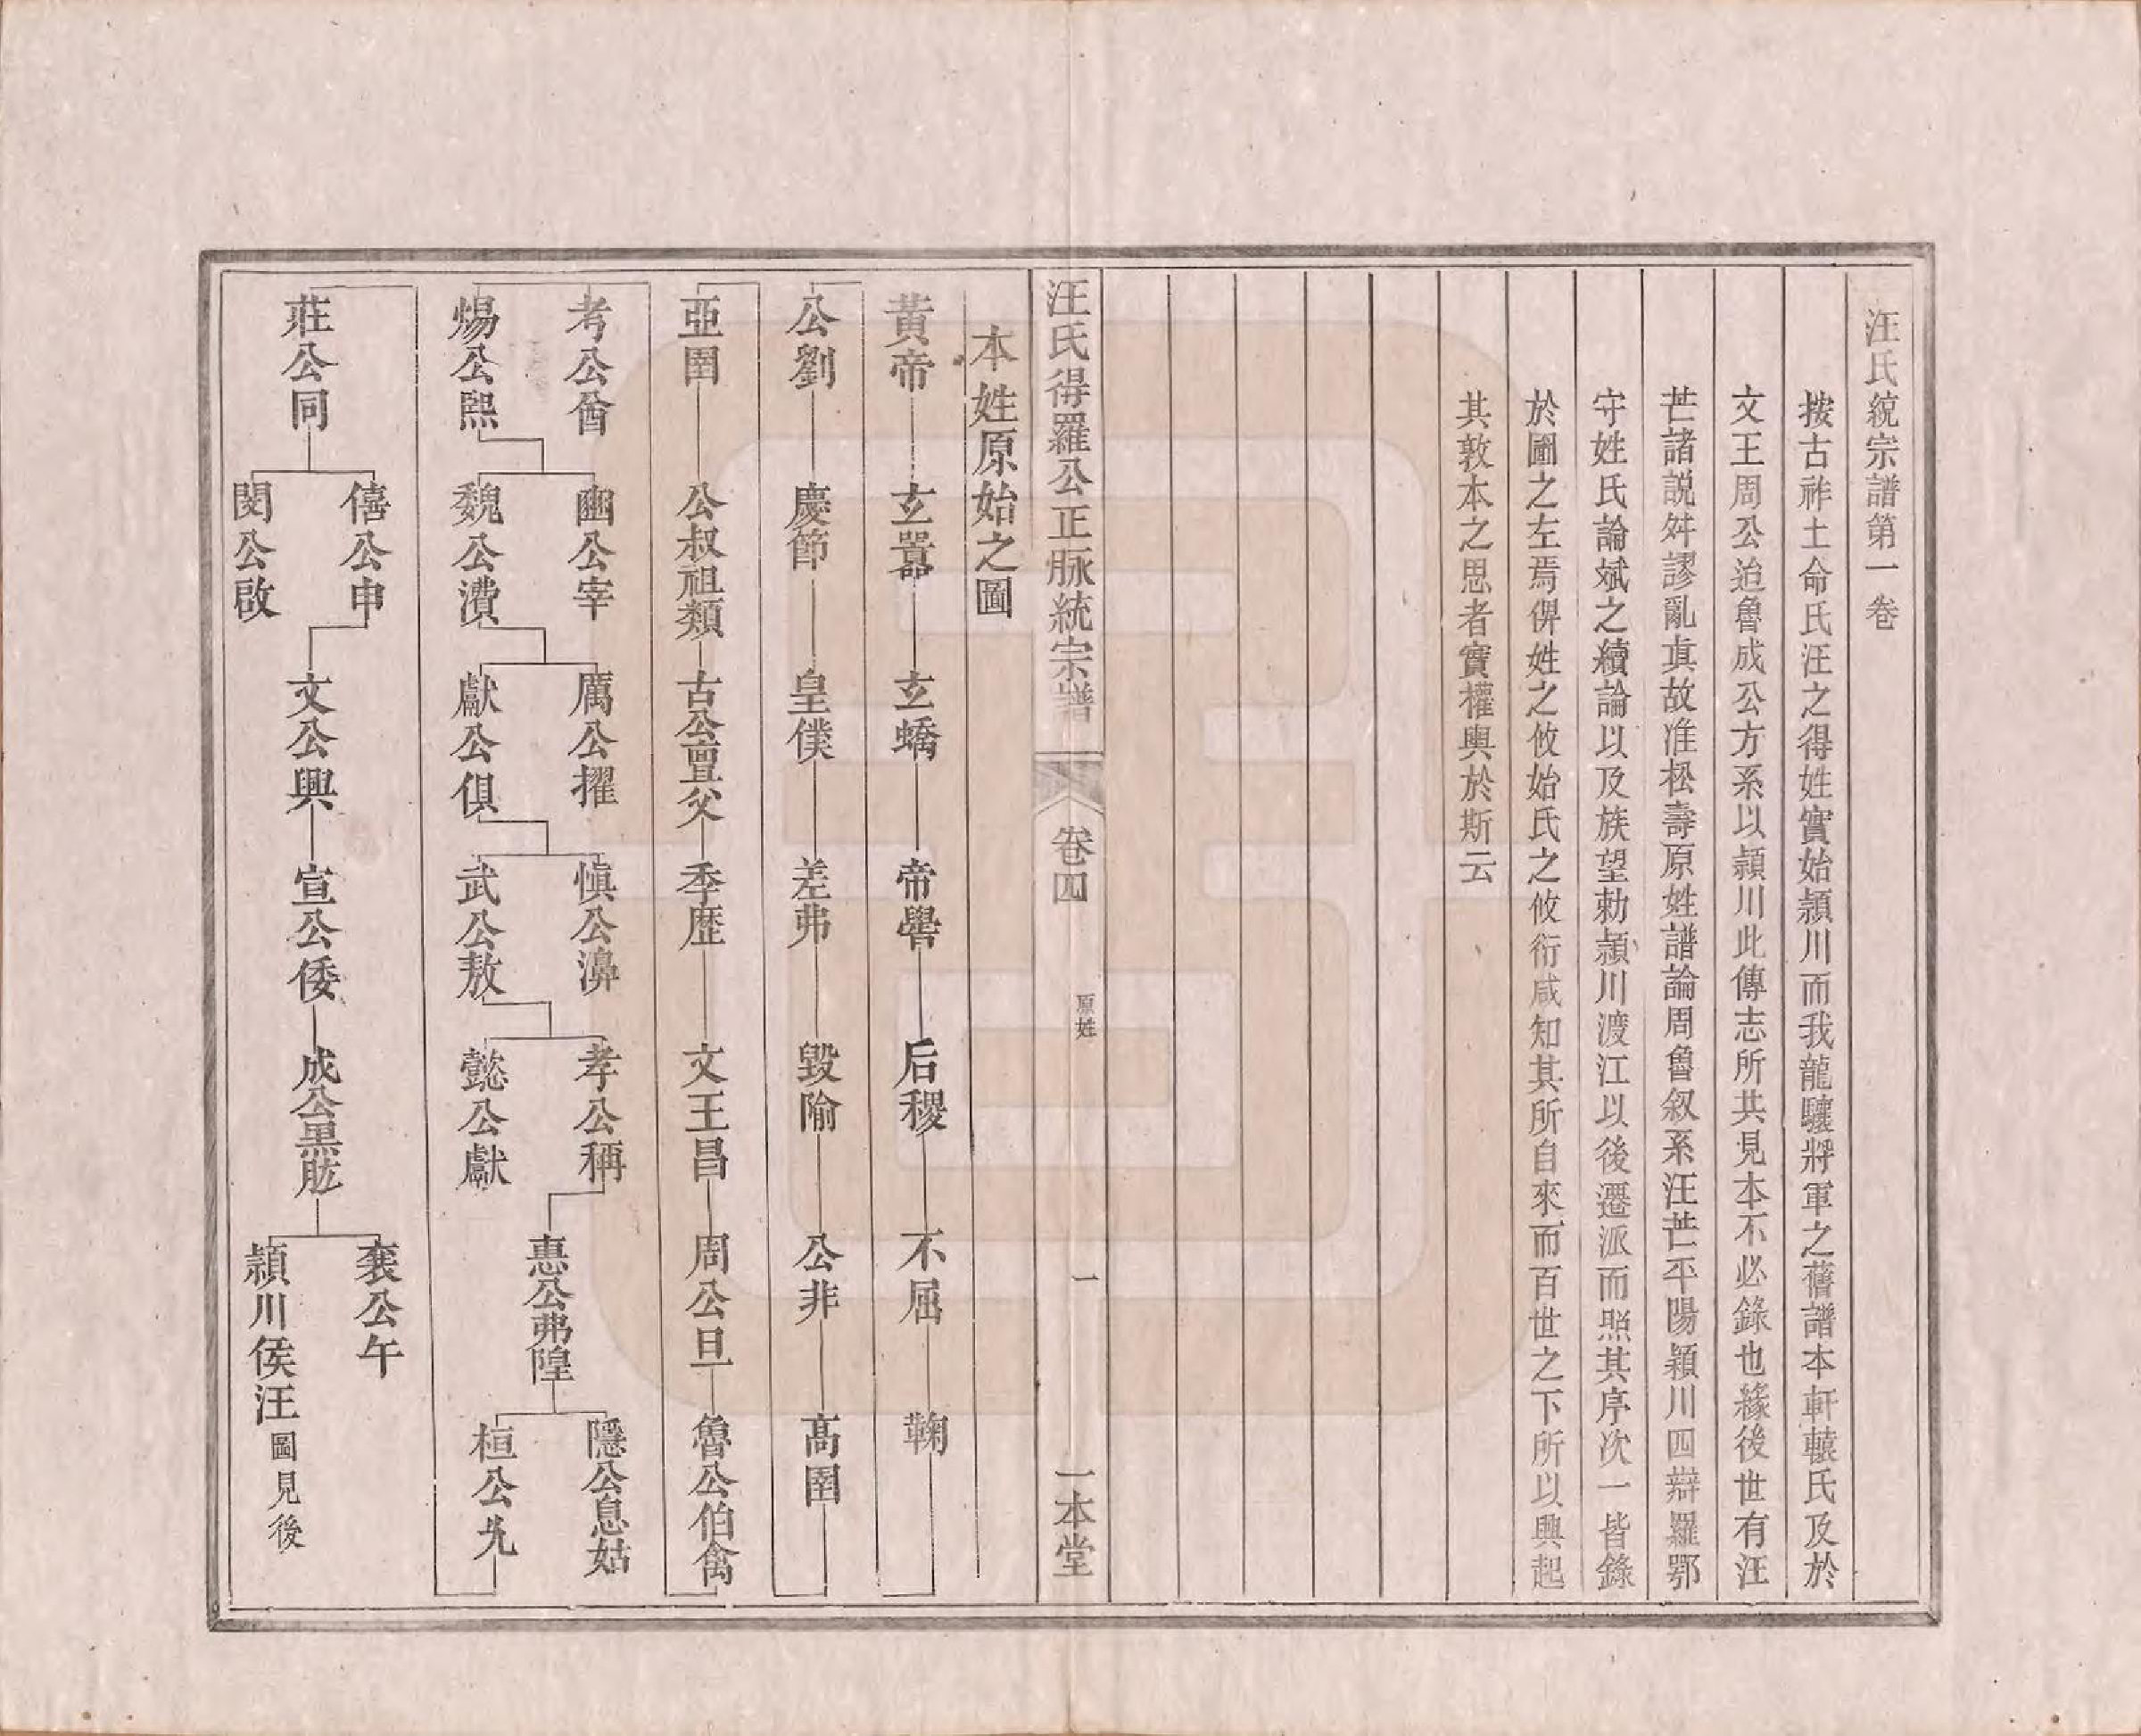 汪氏統宗譜第一卷
按古祚土命氏汪之得姓實始頴川而我龍驤將軍之舊譜本軒轅氏及於
文王周公迨魯成公方系以頴川此傳志所共見本不必錄也緣後世有汪
芒諸説舛謬亂真故准松壽原姓譜論周魯叙系汪芒平陽頴川四辯羅鄂
守姓氏論斌之續論以及族望勅頴川渡江以後遷派而照其序次一皆錄
於圖之左焉俾姓之攸始氏之攸衍咸知其所自來而百世之下所以興起
其敦本之思者實權輿於斯云
汪氏得羅公正脉統宗譜 卷四 原姓 一 一本堂
本姓原始之圖
黃帝 玄囂 玄蟜 帝嚳 后稷 不屈 鞠
公劉 慶節 皇僕 差弗 毀隃 公非 高圉
亞圉 公叔祖類 古公亶父 季歷 文王昌 周公旦 魯公伯禽
考公酋 幽公宰 厲公擢 慎公濞 孝公稱 惠公弗隍 隱公息姑
煬公熙 魏公㵒 獻公俱 武公敖 懿公戲 桓公允
莊公同 僖公申 文公興 宣公倭 成公黑肱 襄公午
閔公啟 頴川侯汪 圖見後